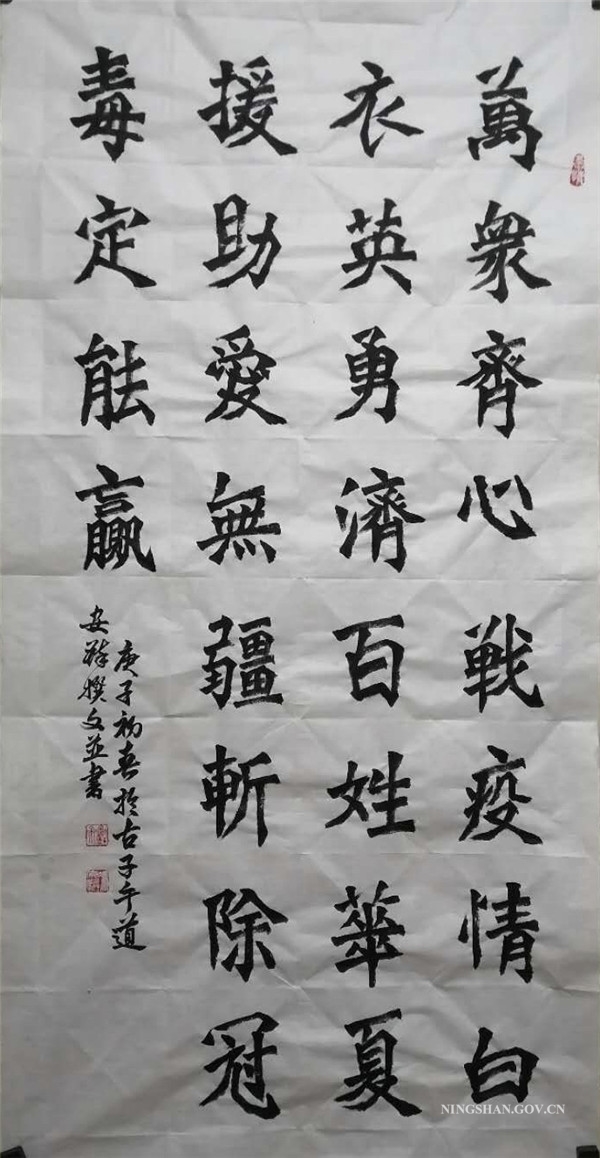 萬衆齊心戰疫情白
衣英勇濟百姓華夏
援助愛無疆斬除冠
毒定能贏
庚子初春於古子午道
安群撰文並書
NINGSHAN.GOV.CN